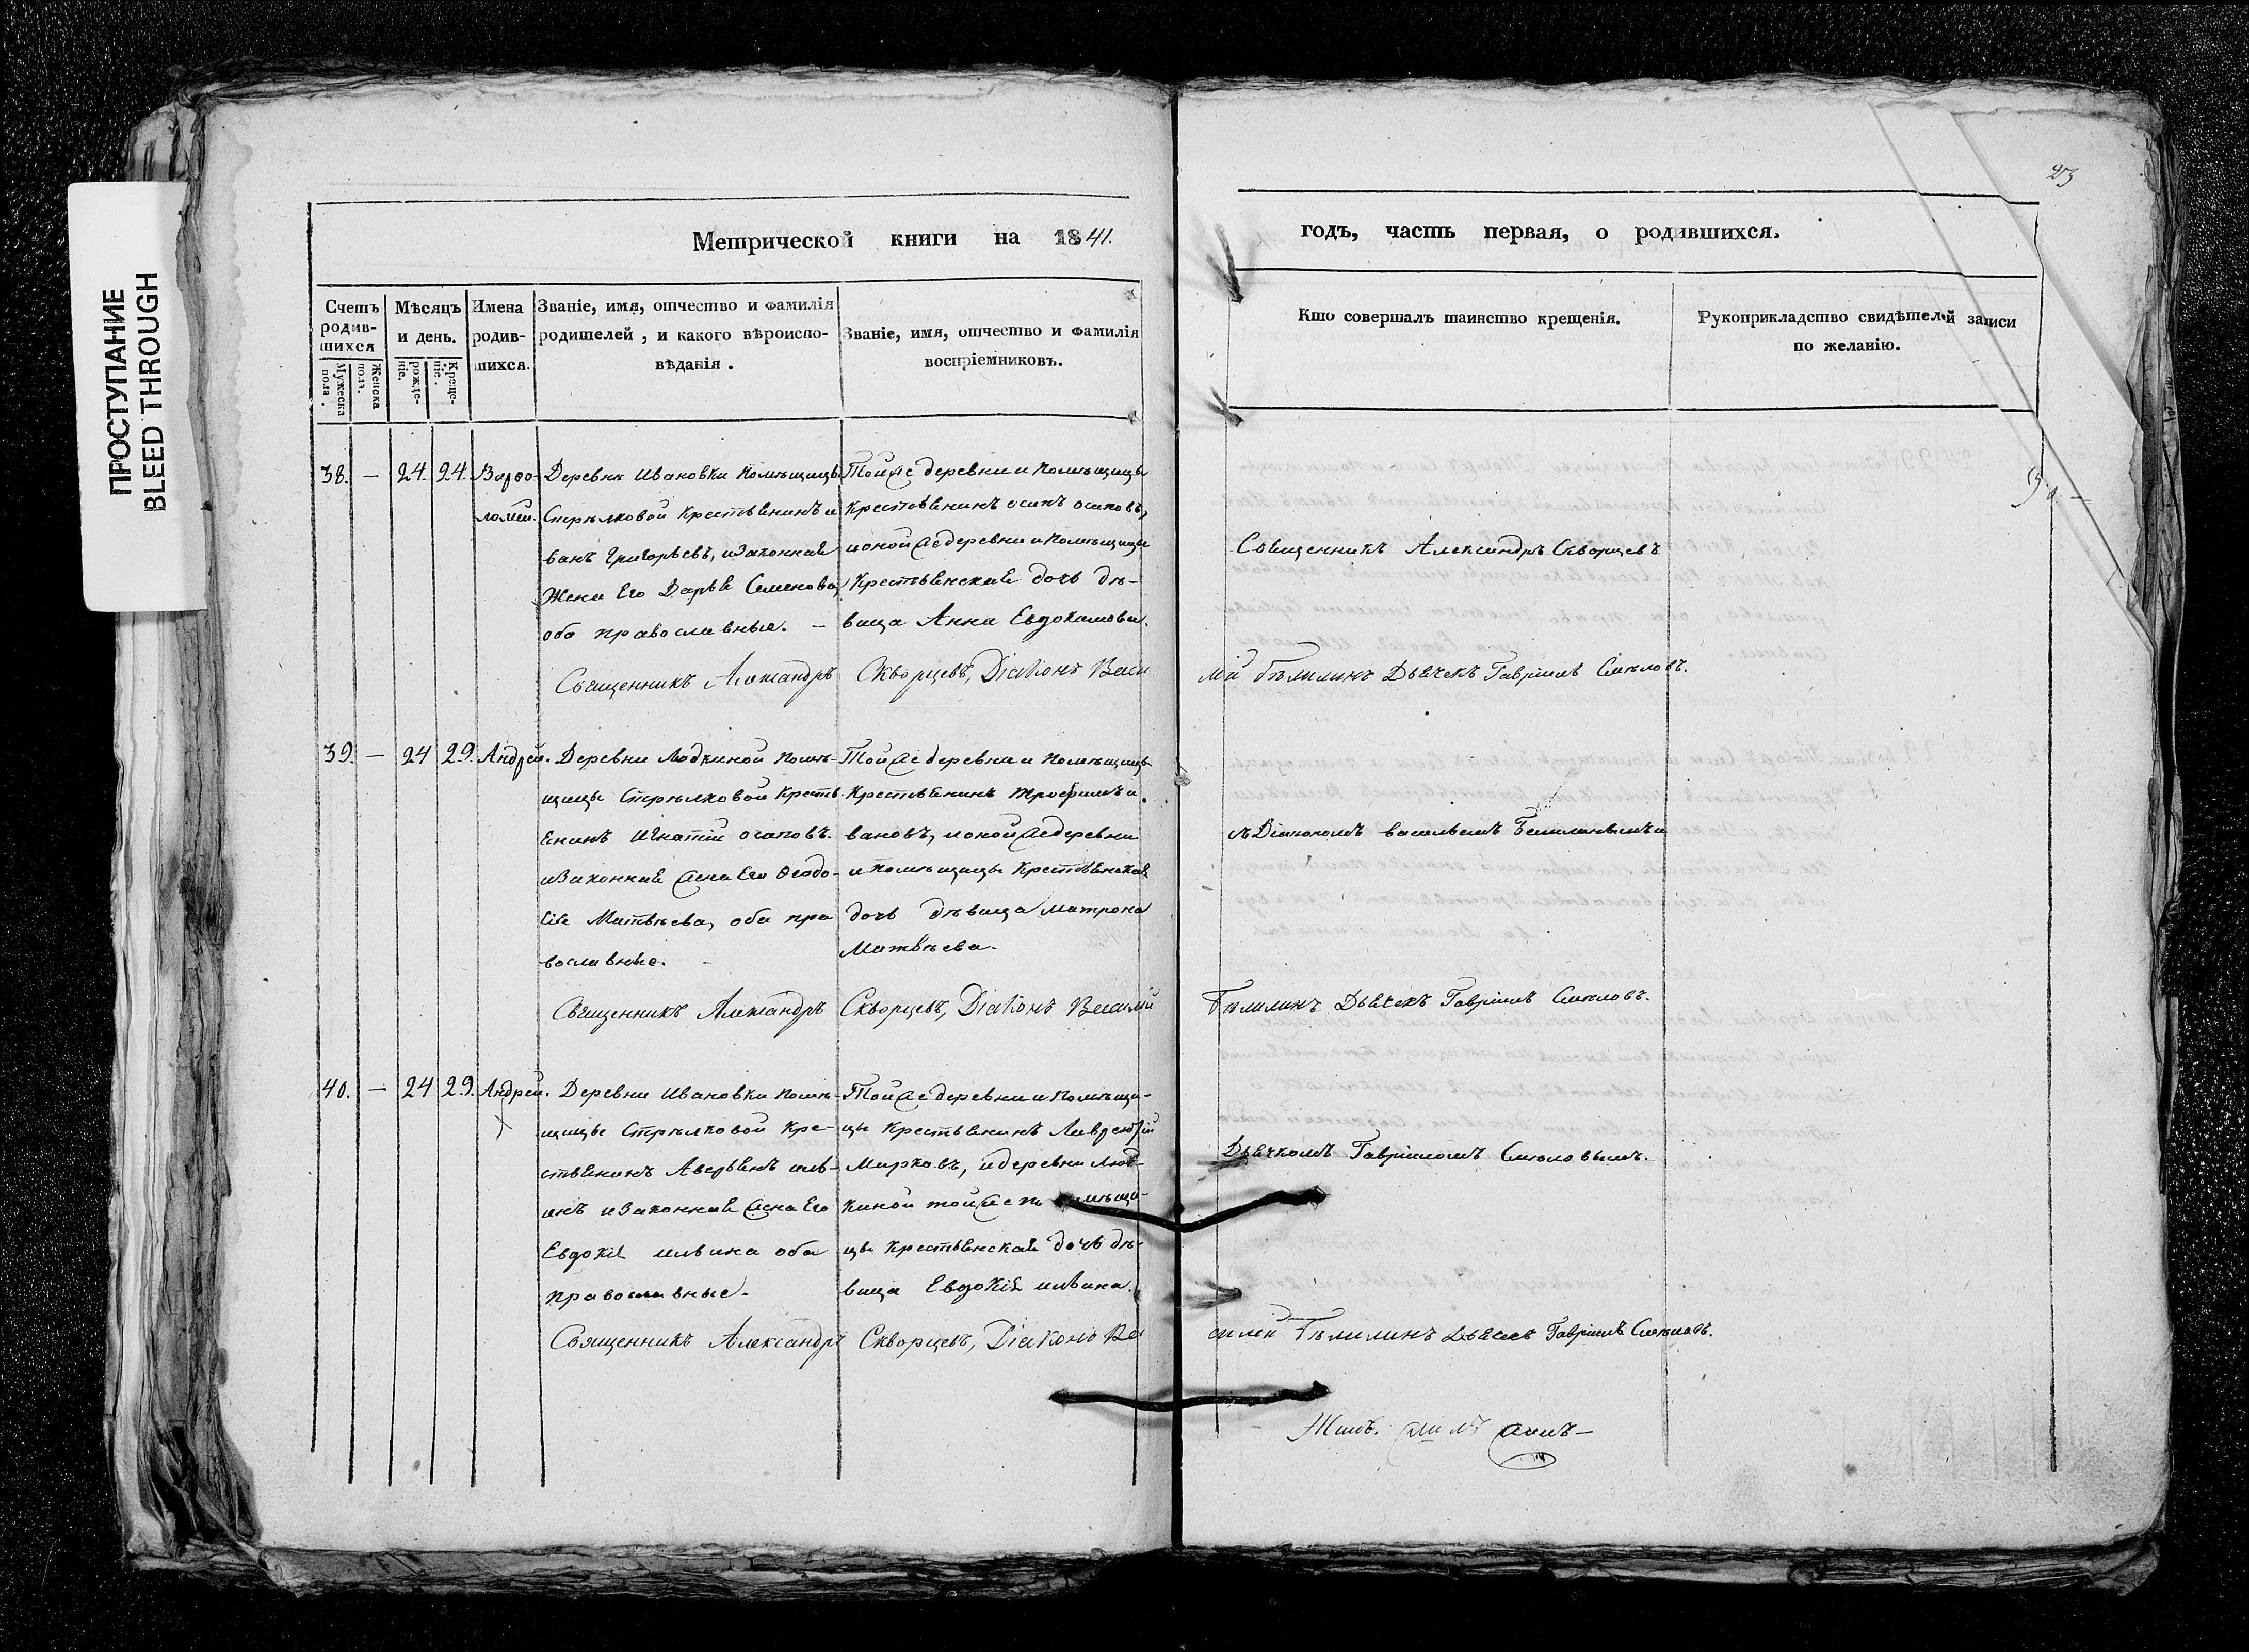 ПРОСТУПАНИЕ
BLEED THROUGH
23
Метрической книги на 1841.
годъ, часть первая, о родившихся.
Счетъ родив-шихся
Мужеска пола.
Женска пола.
Мѣсяцъ и день.
рожде-ніе.
Креще-ніе.
Имена родив-шихся.
Званіе, имя, отчество и фамилія
родителей, и какого вѣроиспо-
вѣданія.
Званіе, имя, отчество и фамилія
воспріемниковъ.
Кто совершалъ таинство крещенія.
Рукоприкладство свидѣтелей записи
по желанію.
38. — 24. 24. Варѳо-
ломей.
Деревни Ивановки помѣщицы
Стрѣлковой крестьянинъ и
ванъ Григорьевъ, и законная
жена Его Дарья Семенова,
оба православные. —
Той же деревни и помѣщицы
крестьянинъ осипъ осиповъ,
и оной же деревни и помѣщицы
крестьянская дочь дѣ-
вица Анна Евдокимова.
Священникъ Александръ Скворцевъ
Священникъ Александръ Скворцевъ, Діаконъ Васи
лій Бѣлилинъ Дьячекъ Гавріилъ Смѣловъ.
39. — 24 29. Андрей.
Деревни Людкиной помѣ-
щицы Стрѣлковой кресть
янинъ Игнатій
и законная жена Его Ѳеодо-
сія Матвѣева, оба пра
вославные. —
Той же деревни и помѣщицы
крестьянинъ трофимъ и
вановъ, и оной же деревни
и помѣщицы крестьянская
дочь дѣвица матрона
Матвѣева.
съ Діакономъ васильемъ
Священникъ Александръ Скворцевъ, Діаконъ Василій
Бѣлилинъ Дьячекъ Гавріилъ Смѣловъ.
40. — 24 29. Андрей.
Деревни Ивановки помѣ-
щицы Стрѣлковой кре-
стьянинъ Аверьянъ иль-
инъ и законная жена Его
Евдокія ильина оба
православные.
Той же деревни и помѣщи-
цы крестьянинъ Лаврентій
Марковъ, и деревни Люд-
киной той же помѣщи-
цы крестьянская дочь дѣ-
вица Евдокія ильина.
Дьячкомъ Гавріиломъ Смѣловымъ.
Священникъ Александръ Скворцевъ, Діаконъ Ва
силій Бѣлилинъ Дьячекъ Гавріилъ Смѣловъ.